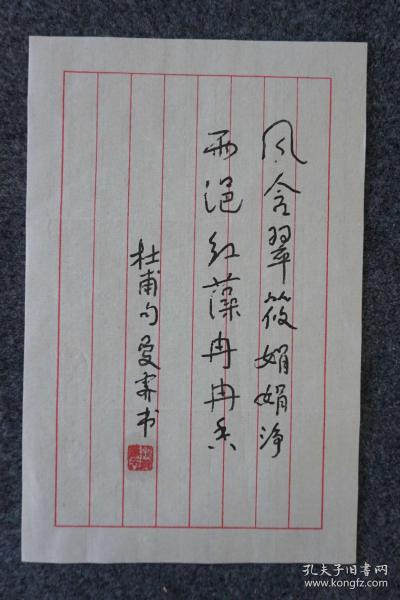 风含翠筱娟娟净
雨浥红藻冉冉香
杜甫句书
孔夫子旧书网
www.kongfz.com